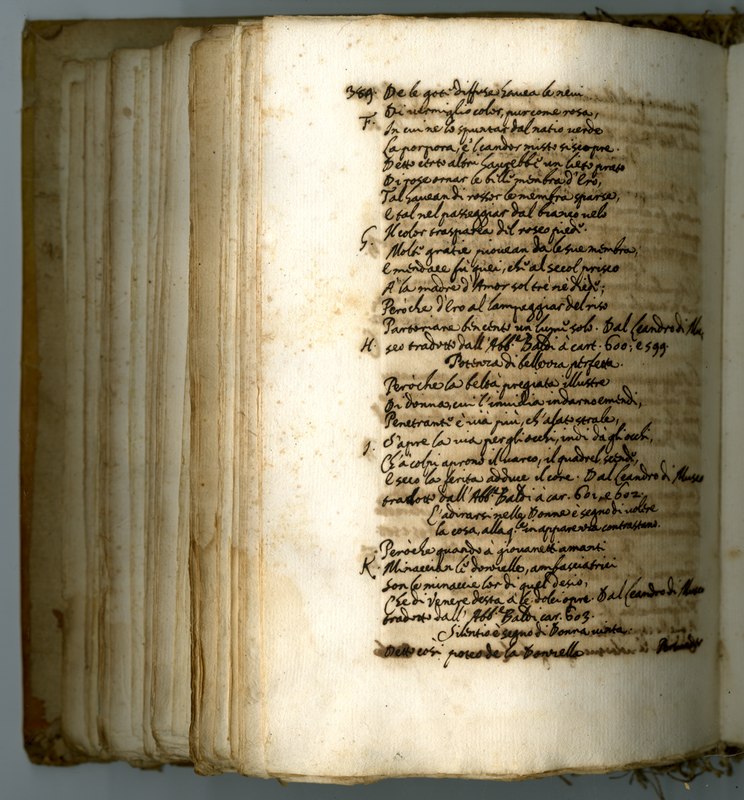 389. De le gote diffuse havea le nevi
Di vermiglio color, pur come rosa,
F. In cui ne lo spuntar dal natio verde
La porpora, e'l candor misto si scopre.
Detto certo altri havrebbe un lieto prato
Di rose ornar le belle membra d'Ero,
Tal havean di rossor le membra sparse,
E tal nel passeggiar dal bianco velo
Il color trasparea del roseo piede.
G. Molte gratie piovean da le sue membra,
E mendace fù quei, che al secol prisco
A la madre d'Amor sol tre ne diede;
Peròche d'Ero al lampeggiar del riso
Partoriane ben cento un lume solo. Dal Leandro di Mu,
H. seo tradotto dall'Abb.e Baldi à cart. 600; e 599.
Potenza di bellezza perfetta.
Peròche la beltà pregiata illustre
Di donna, cui l'invidia indarno emendi,
Penetrante è via più, ch'alato strale,
I. S'apre la via per gli occhi, indi dà gli occhi,
Ch'a colpi aprono il varco, il quadrel scende,
E seco la ferita adduce il core. Dal Leandro di Museo
tradotto dall'Abb.e Baldi à car. 601, e 602.
L'adirarsi nelle Donne è segno di volere
la cosa, alla q.le in apparenza contrastano.
Peròche quando à giovanetti amanti
K. Minaccian le donzelle, ambasciatrici
Son le minaccie lor di quel desio,
Che di Venere desta à le dolci opre. Dal Leandro di Museo
tradotto dall'Abb.e Baldi car. 603.
Silentio è segno di Donna vinta.
Detto così poscò de la Donzella